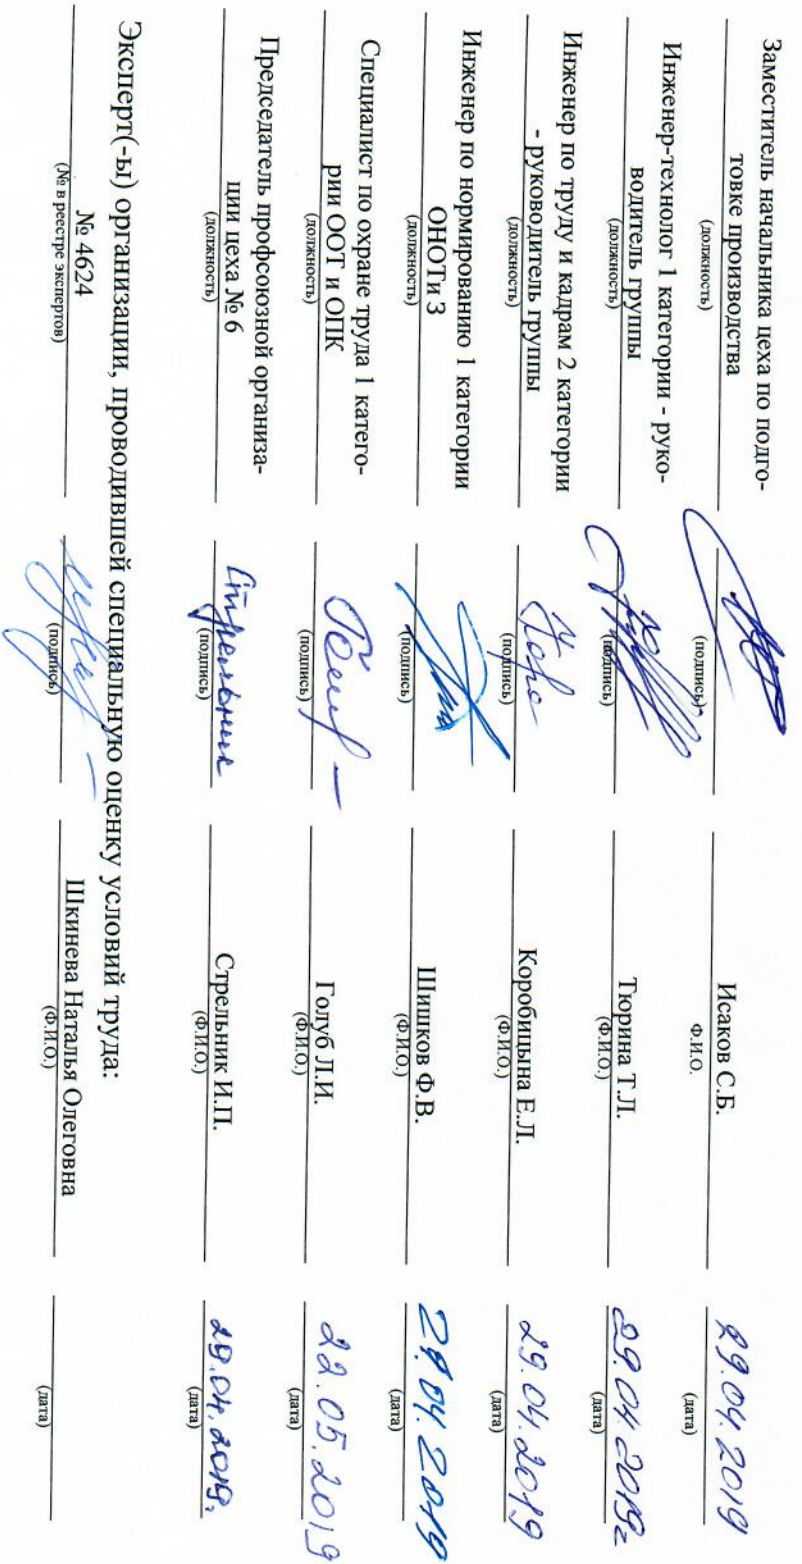 Заместитель начальника цеха по подго-
товке производства
(должность)
(подпись)
Исаков С.Б.
Ф.И.О.
29.04.2019
(дата)
Инженер-технолог 1 категории - руко-
водитель группы
(должность)
(подпись)
Тюрина Т.Л.
(Ф.И.О.)
29.04 2019г
(дата)
Инженер по труду и кадрам 2 категории
- руководитель группы
(должность)
(подпись)
Коробицына Е.Л.
(Ф.И.О.)
29.04.2019
(дата)
Инженер по нормированию 1 категории
ОНОТиЗ
(должность)
(подпись)
Шишков Ф.В.
(Ф.И.О.)
29.04.2019
(дата)
Специалист по охране труда 1 катего-
рии ООТ и ОПК
(должность)
(подпись)
Голуб Л.И.
(Ф.И.О.)
22.05.2019
(дата)
Председатель профсоюзной организа-
ции цеха № 6
(должность)
Стрельник
(подпись)
Стрельник И.П.
(Ф.И.О.)
29.04.2019г
(дата)
Эксперт(-ы) организации, проводившей специальную оценку условий труда:
№ 4624
(№ в реестре экспертов)
(подпись)
Шкинева Наталья Олеговна
(Ф.И.О.)
(дата)